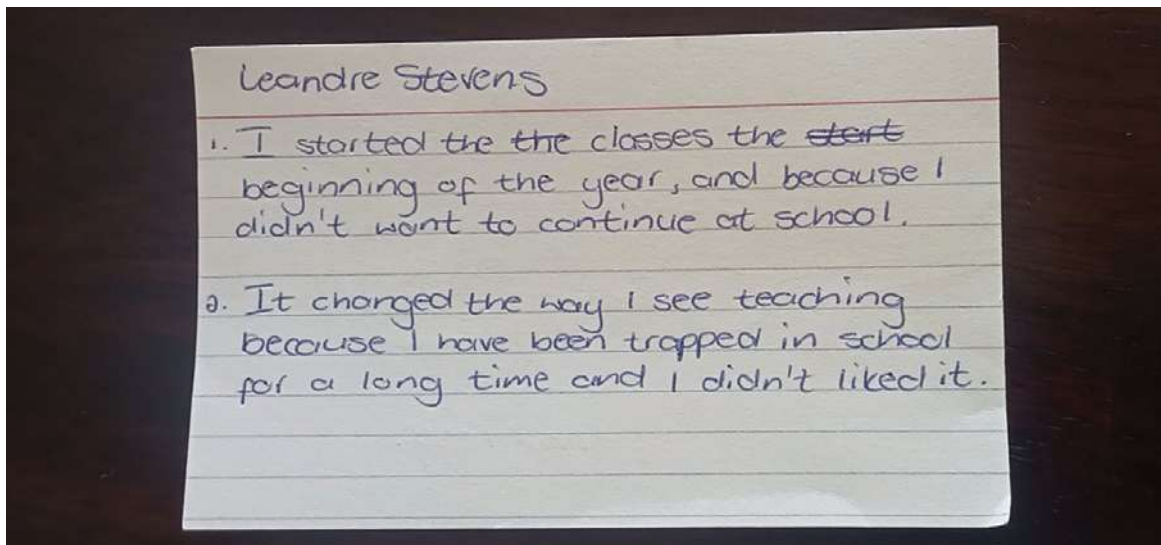 Leandre Stevens
1. I started the the classes the start
beginning of the year, and because I
didn't want to continue at school.
2. It changed the way I see teaching
because I have been trapped in school
for a long time and I didn't liked it.